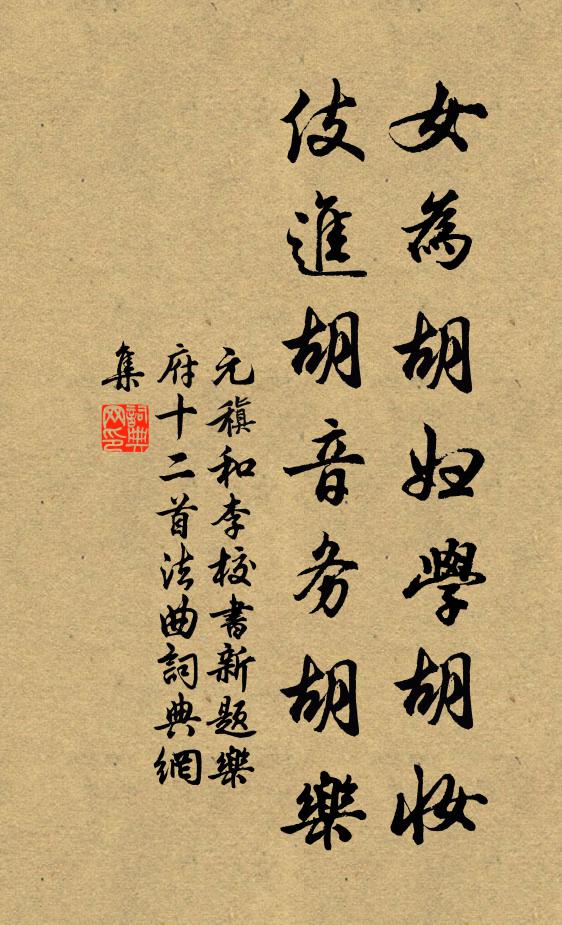 女為胡妇學胡妝
伎進胡音务胡樂
元稹和李校書新題樂
府十二首法曲詞典網
集
詞典网印